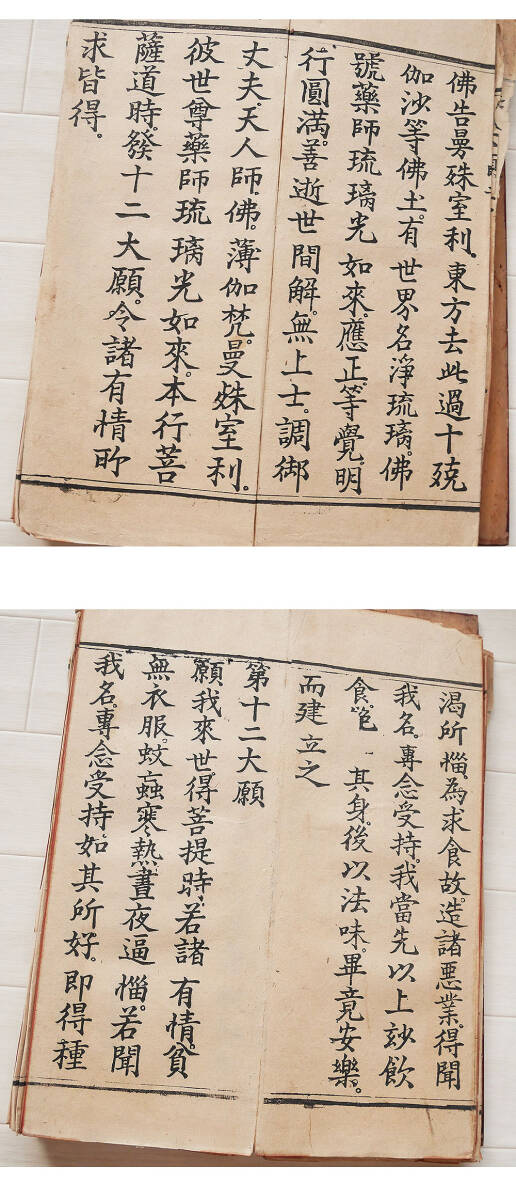 佛告曼殊室利。東方去此過十殑
伽沙等佛土。有世界名淨琉璃。佛
號藥師琉璃光如來。應正等覺。明
行圓滿。善逝世間解。無上士。調御
丈夫。天人師。佛。薄伽梵。曼殊室利。
彼世尊藥師琉璃光如來。本行菩
薩道時。發十二大願。令諸有情所
求皆得。
渴所惱。為求食故。造諸惡業。得聞
我名。專念受持。我當先以上玅飲
食。飽其身。後以法味。畢竟安樂。
而建立之
第十二大願
願我來世。得菩提時。若諸有情。貧
無衣服。蚊蝱寒熱。晝夜逼惱。若聞
我名。專念受持。如其所好。即得種